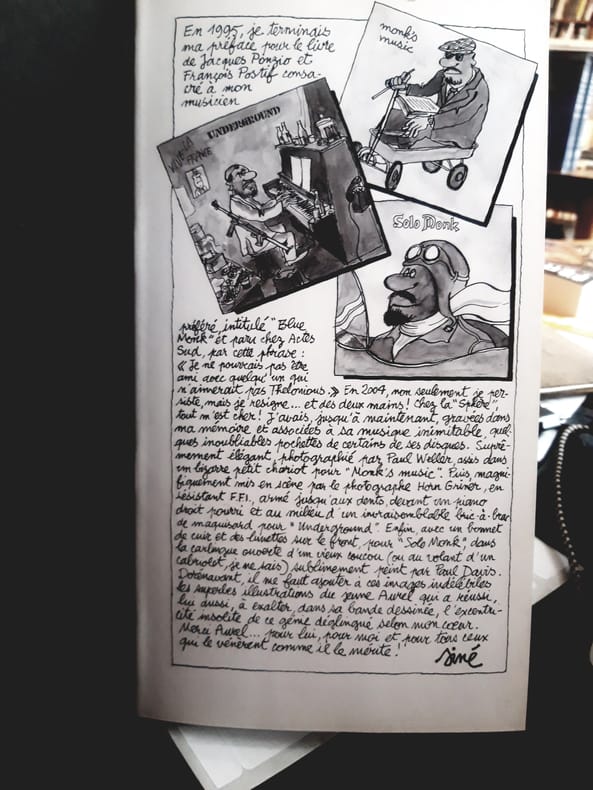 En 1995, je terminais
ma préface pour le livre
de Jacques Ponzio et
François Postif consa-
cré à mon
musicien
monk's
music
UNDERGROUND
VIVE LA
FRANCE
Solo Monk
préféré, intitulé "Blue
Monk" et paru chez Actes
Sud, par cette phrase :
« Je ne pourrais pas être
ami avec quelqu'un qui
n'aimerait pas Thelonious. » En 2004, non seulement je per-
siste, mais je resigne... et des deux mains ! Chez la "Sphère"
tout m'est cher ! J'avais, jusqu'à maintenant, gravées dans
ma mémoire et associées à sa musique inimitable, quel-
ques inoubliables pochettes de certains de ses disques. Suprê-
mement élégant, photographié par Paul Weller assis dans
un bizarre petit chariot pour "Monk's music". Puis, magni-
fiquement mis en scène par le photographe Horn Griner, en
résistant F.F.I., armé jusqu'aux dents, devant un piano
droit pourri et au milieu d'un invraisemblable bric-à-brac
de maquisard pour "Underground". Enfin, avec un bonnet
de cuir et des lunettes sur le front, pour "Solo Monk", dans
la carlingue ouverte d'un vieux coucou (ou au volant d'un
cabriolet, je ne sais) sublimement peint par Paul Davis.
Dorénavant, il me faut ajouter à ces images indélébiles
les superbes illustrations du jeune Aurel qui a réussi,
lui aussi, à exalter, dans sa bande dessinée, l'excentri-
cité insolite de ce génie déglingué selon mon cœur.
Merci Aurel... pour lui, pour moi et pour tous ceux
qui le vénèrent comme il le mérite !
siné